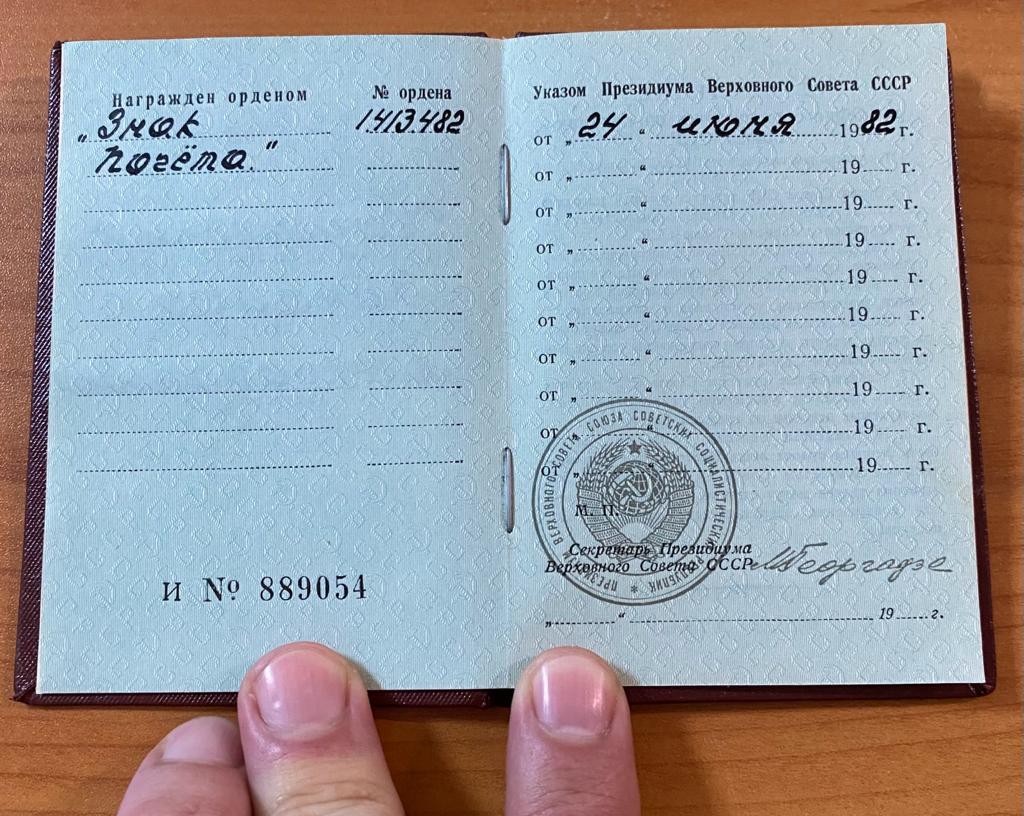 Награжден орденом
№ ордена
„Знак
1.413.482
Почёта."
И № 889054
Указом Президиума Верховного Совета СССР
от „ 24 “ июня 1982 г.
от „ “ 19 г.
от „ “ 19 г.
от „ “ 19 г.
от „ “ 19 г.
от „ “ 19 г.
от „ “ 19 г.
от „ “ 19 г.
от „ “ 19 г.
от „ “ 19 г.
М. П.
ПРЕЗИДИУМ ВЕРХОВНОГО СОВЕТА СОЮЗА СОВЕТСКИХ СОЦИАЛИСТИЧЕСКИХ РЕСПУБЛИК
Секретарь Президиума
Верховного Совета СССР МГеоргадзе
„ “ 19 г.